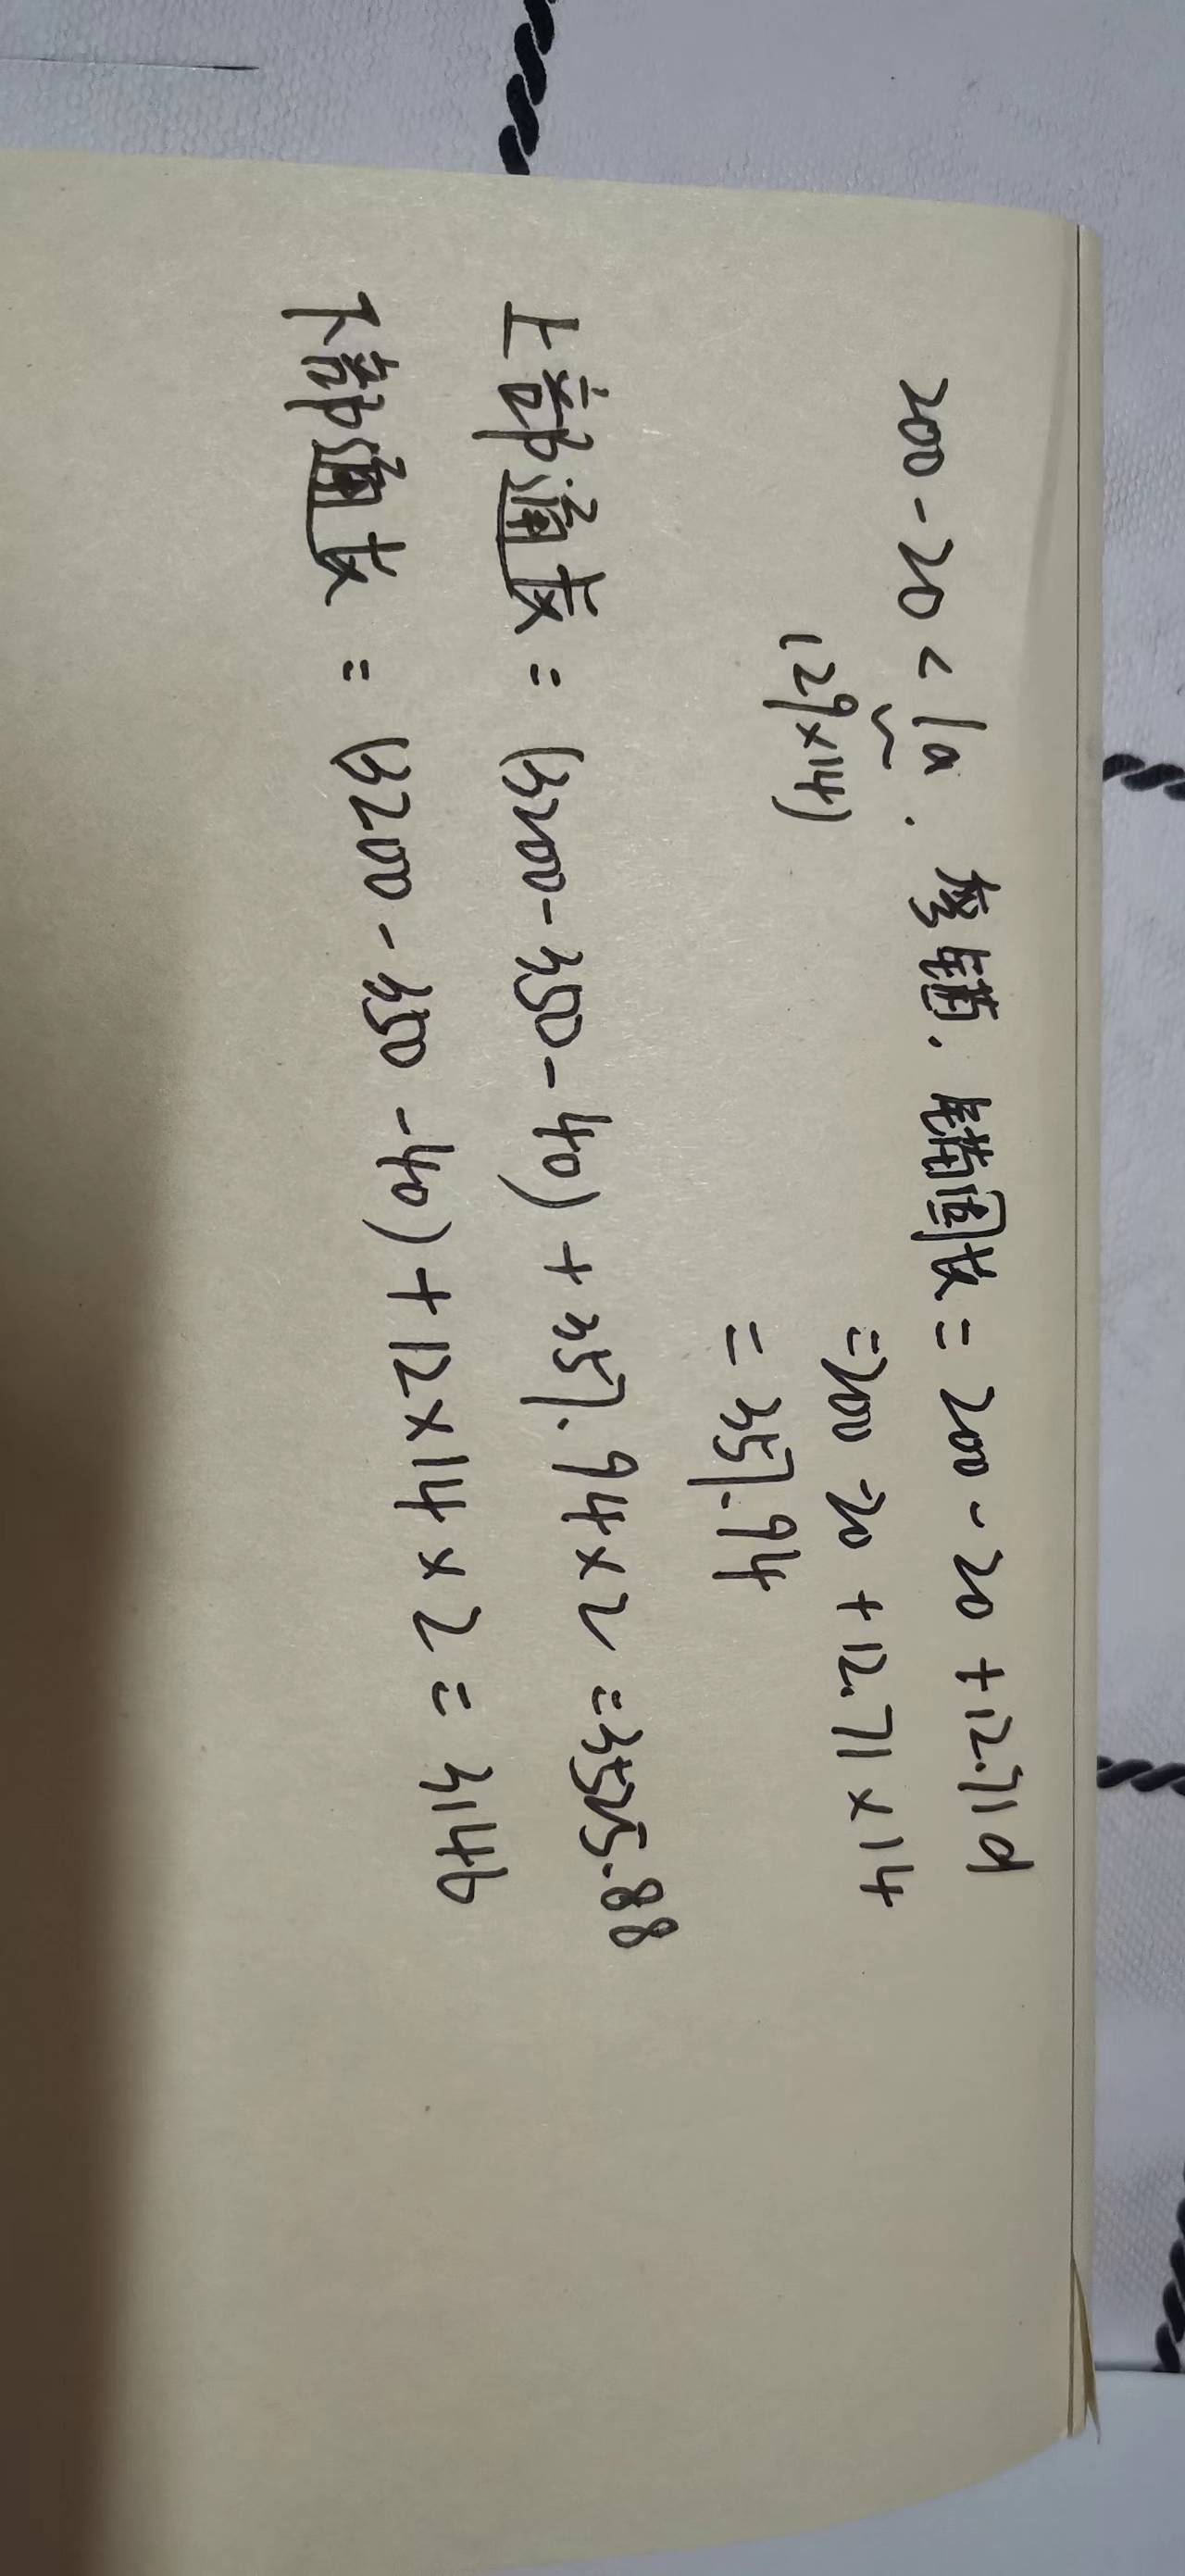 200-20<la. 弯锚. 锚固长=200-20+12.71d
(29×14)
=200-20+12.71×14
=357.94
上部通长=(3200-350-40)+357.94×2=3525.88
下部通长=(3200-350-40)+12×14×2=3146